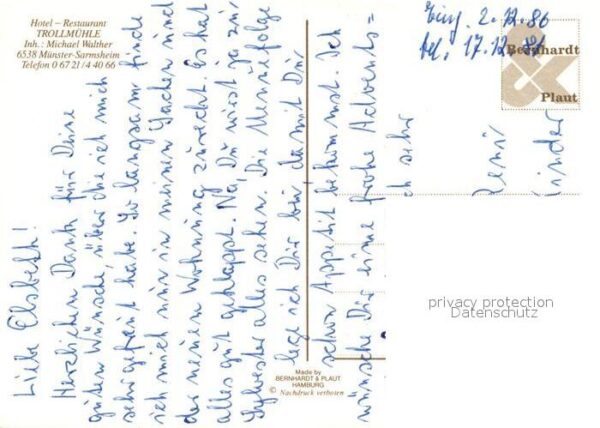 Hotel – Restaurant
TROLLMÜHLE
Inh.: Michael Walther
6538 Münster-Sarmsheim
Telefon 0 67 21/4 40 66
Eing. 2.12.86
tel. 17.12.86
Bernhardt
&
Plaut
Liebe Elsbeth!
Herzlichen Dank für Deine
guten Wünsche, über die ich mich
sehr gefreut habe. So langsam finde
ich mich nun in meinen Sachen und
der neuen Wohnung zurecht. Es hat
alles gut geklappt. Na, Du wirst ja zu
Sylvester alles sehen. Die Menuefolge
lege ich Dir bei damit Du
schon Appetit bekommst. Ich
wünsche Dir eine frohe Advents=
ch sehr
Kinder
privacy protection
Datenschutz
Made by
BERNHARDT & PLAUT
HAMBURG
© Nachdruck verboten